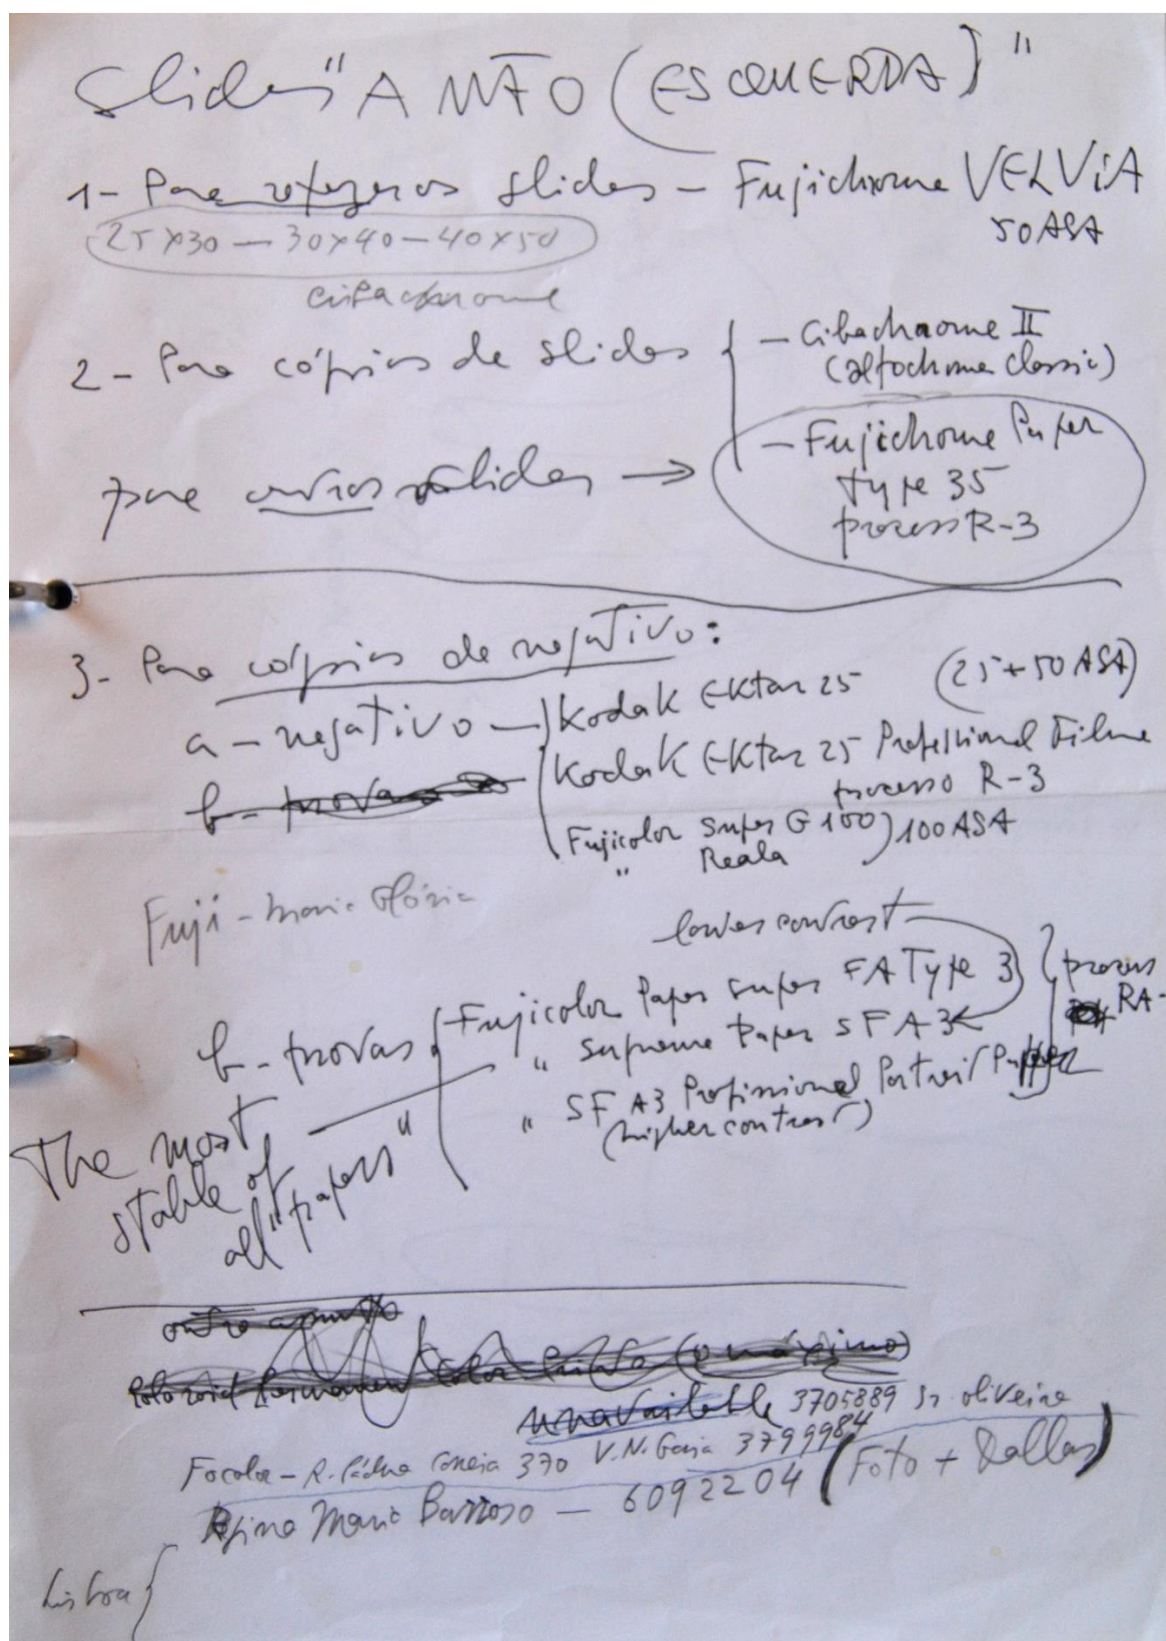 Slides "A MÃO (ESQUERDA)"
1- Para refazer os slides - Fujichrome VELViA
50 ASA
25x30 - 30x40 - 40x50
cibachrome
2- Para cópias de slides { - Cibachrome II
(alfochrome classic)
- Fujichrome Paper
type 35
process R-3
para outros slides →
3- Para cópias de negativo:
a - negativo - Kodak EKtar 25 (25 + 50 ASA)
Kodak EKtar 25 Professional Filme
processo R-3
b - provas
Fujicolor super G 100) 100 ASA
" Reala
Fuji - Maria Glória
lower contrast
b - provas { Fujicolor Paper super FA Type 3 } process
RA-
" supreme Paper SFA3
" SFA3 Profissional Portrait Paper
(higher contrast)
The most
stable of
all "papers"
outro
Polaroid Permanent Color Prints (o máximo)
unavailable 3705889 Sr. Oliveira
Focolor - R. Pádua Correia 370 V.N. Gaia 3799984
(Foto + Dallas)
Mario Barroso - 6092204
Lisboa {